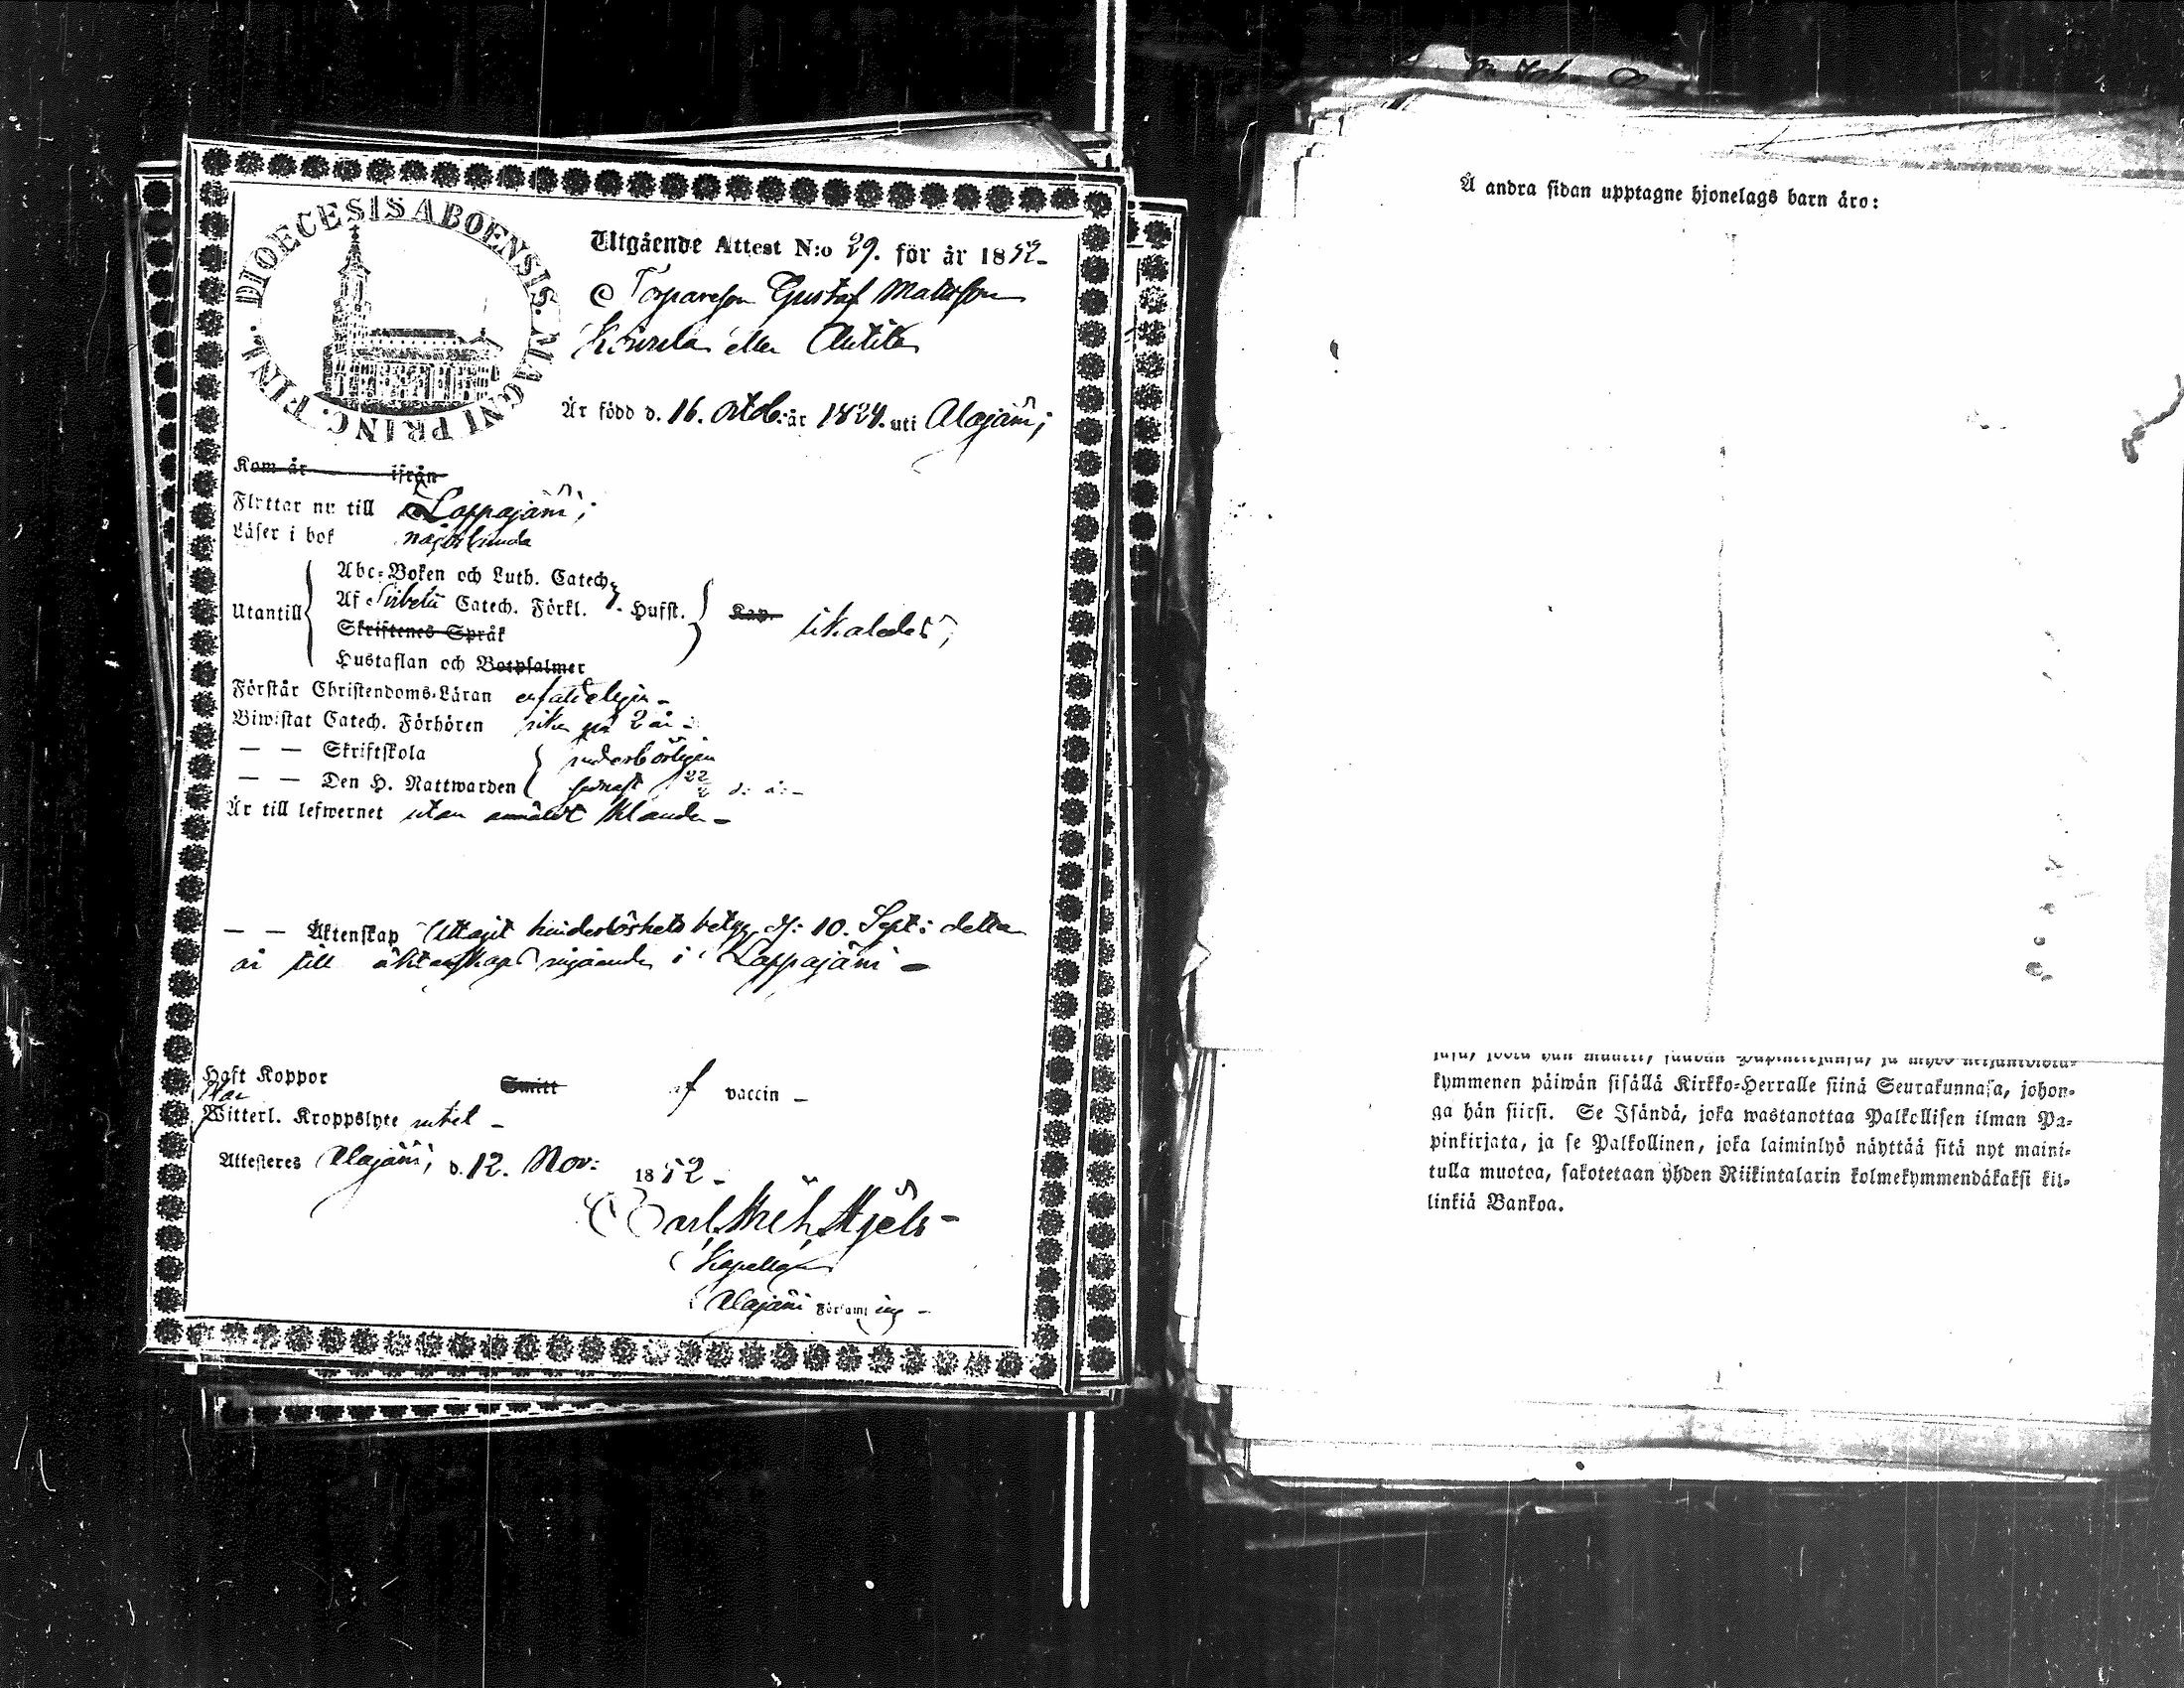 DIOECESIS ABOENSIS. MAGNI PRINC. FINL.
Utgående Attest N:o 29. för år 1852-
Torpareson Gustaf Mattsson
eller Antila
Är född d. 16. Octob: år 1824. uti Alajärvi;
Kom år ifrån
Flyttar nu till Lappajärvi;
Läser i bok någorlunda
Utantill
Abc-Boken och Luth. Catech.
Af Svebelii Catech. Förkl. Husst.
Skriftenes Språk
Hustaflan och Botpsalmer
Kap. likaledes;
Förstår Christendoms-Läran enfaldeligen -
Biwistat Catech. Förhören på 2 år -
— — Skriftskola
— — Den H. Nattwarden senast 22
vederbörligen
Är till lefwernet utan anmäldt klander -
— — Äktenskap Uttagit hinderlöshets betyg d: 10. Sept: detta
år till äktenskaps ingående i Lappajärvi -
Haft Koppor Smitt af vaccin -
Har
Witterl. Kroppslyte intet -
Attesteres Alajärvi, d. 12. Nov: 1852 -
Carl
Kapellan
Alajärvi Församling -
Å andra sidan upptagne hjonelags barn äro:
kymmenen päiwän sisällä Kirkko-Herralle siinä Seurakunnasa, johon-
ga hän siirsi. Se Isändä, joka wastanottaa Palkollisen ilman Pa-
pinkirjata, ja se Palkollinen, joka laiminlyö näyttää sitä nyt maini-
tulla muotoa, sakotetaan yhden Riikintalarin kolmekymmendäkaksi kil-
linkiä Bankoa.